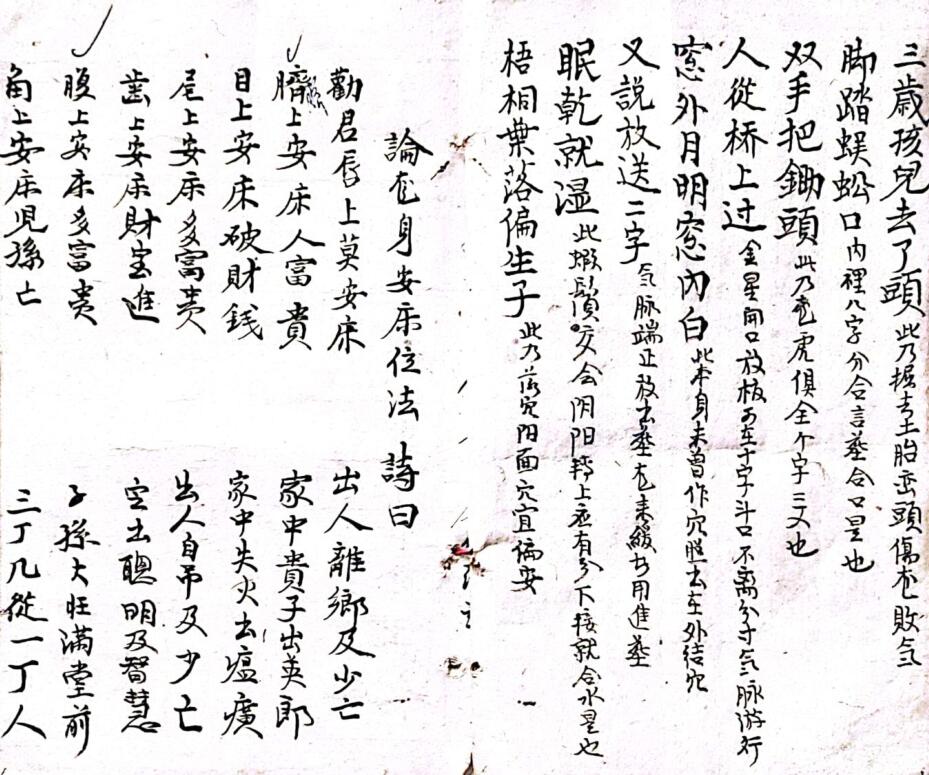 三歲孩兒去了頭 此乃掘去土胎巒頭傷龙敗气
脚踏蜈蚣口內裡 八字分合言塟合口是也
双手把鋤頭 此乃龙虎俱全个字三叉也
人從桥上过 金星開口放棺可在十字斗口不离分寸气脉游行
窓外月明窓內白 此本身未曽作穴脱去在外結穴
又說放送二字 气脉端正放去塟龙来緩方用進塟
眠乾就濕 此蝦鬚交会阴阳 上盃有分下接就合水是也
梧桐葉落偏生子 此乃落穴阳面穴宜偏安
論龙身安床位法 詩曰
勸君唇上莫安床 出人離鄉及少亡
臍上安床人富貴 家中貴子出英郎
目上安床破財錢 家中失火出瘟癀
尾上安床多富贵 出人自吊及少亡
歯上安床財宝進 定出聰明及智慧
腹上安床多富贵 子孫大旺满堂前
角上安床児孫亡 三丁几從一丁人